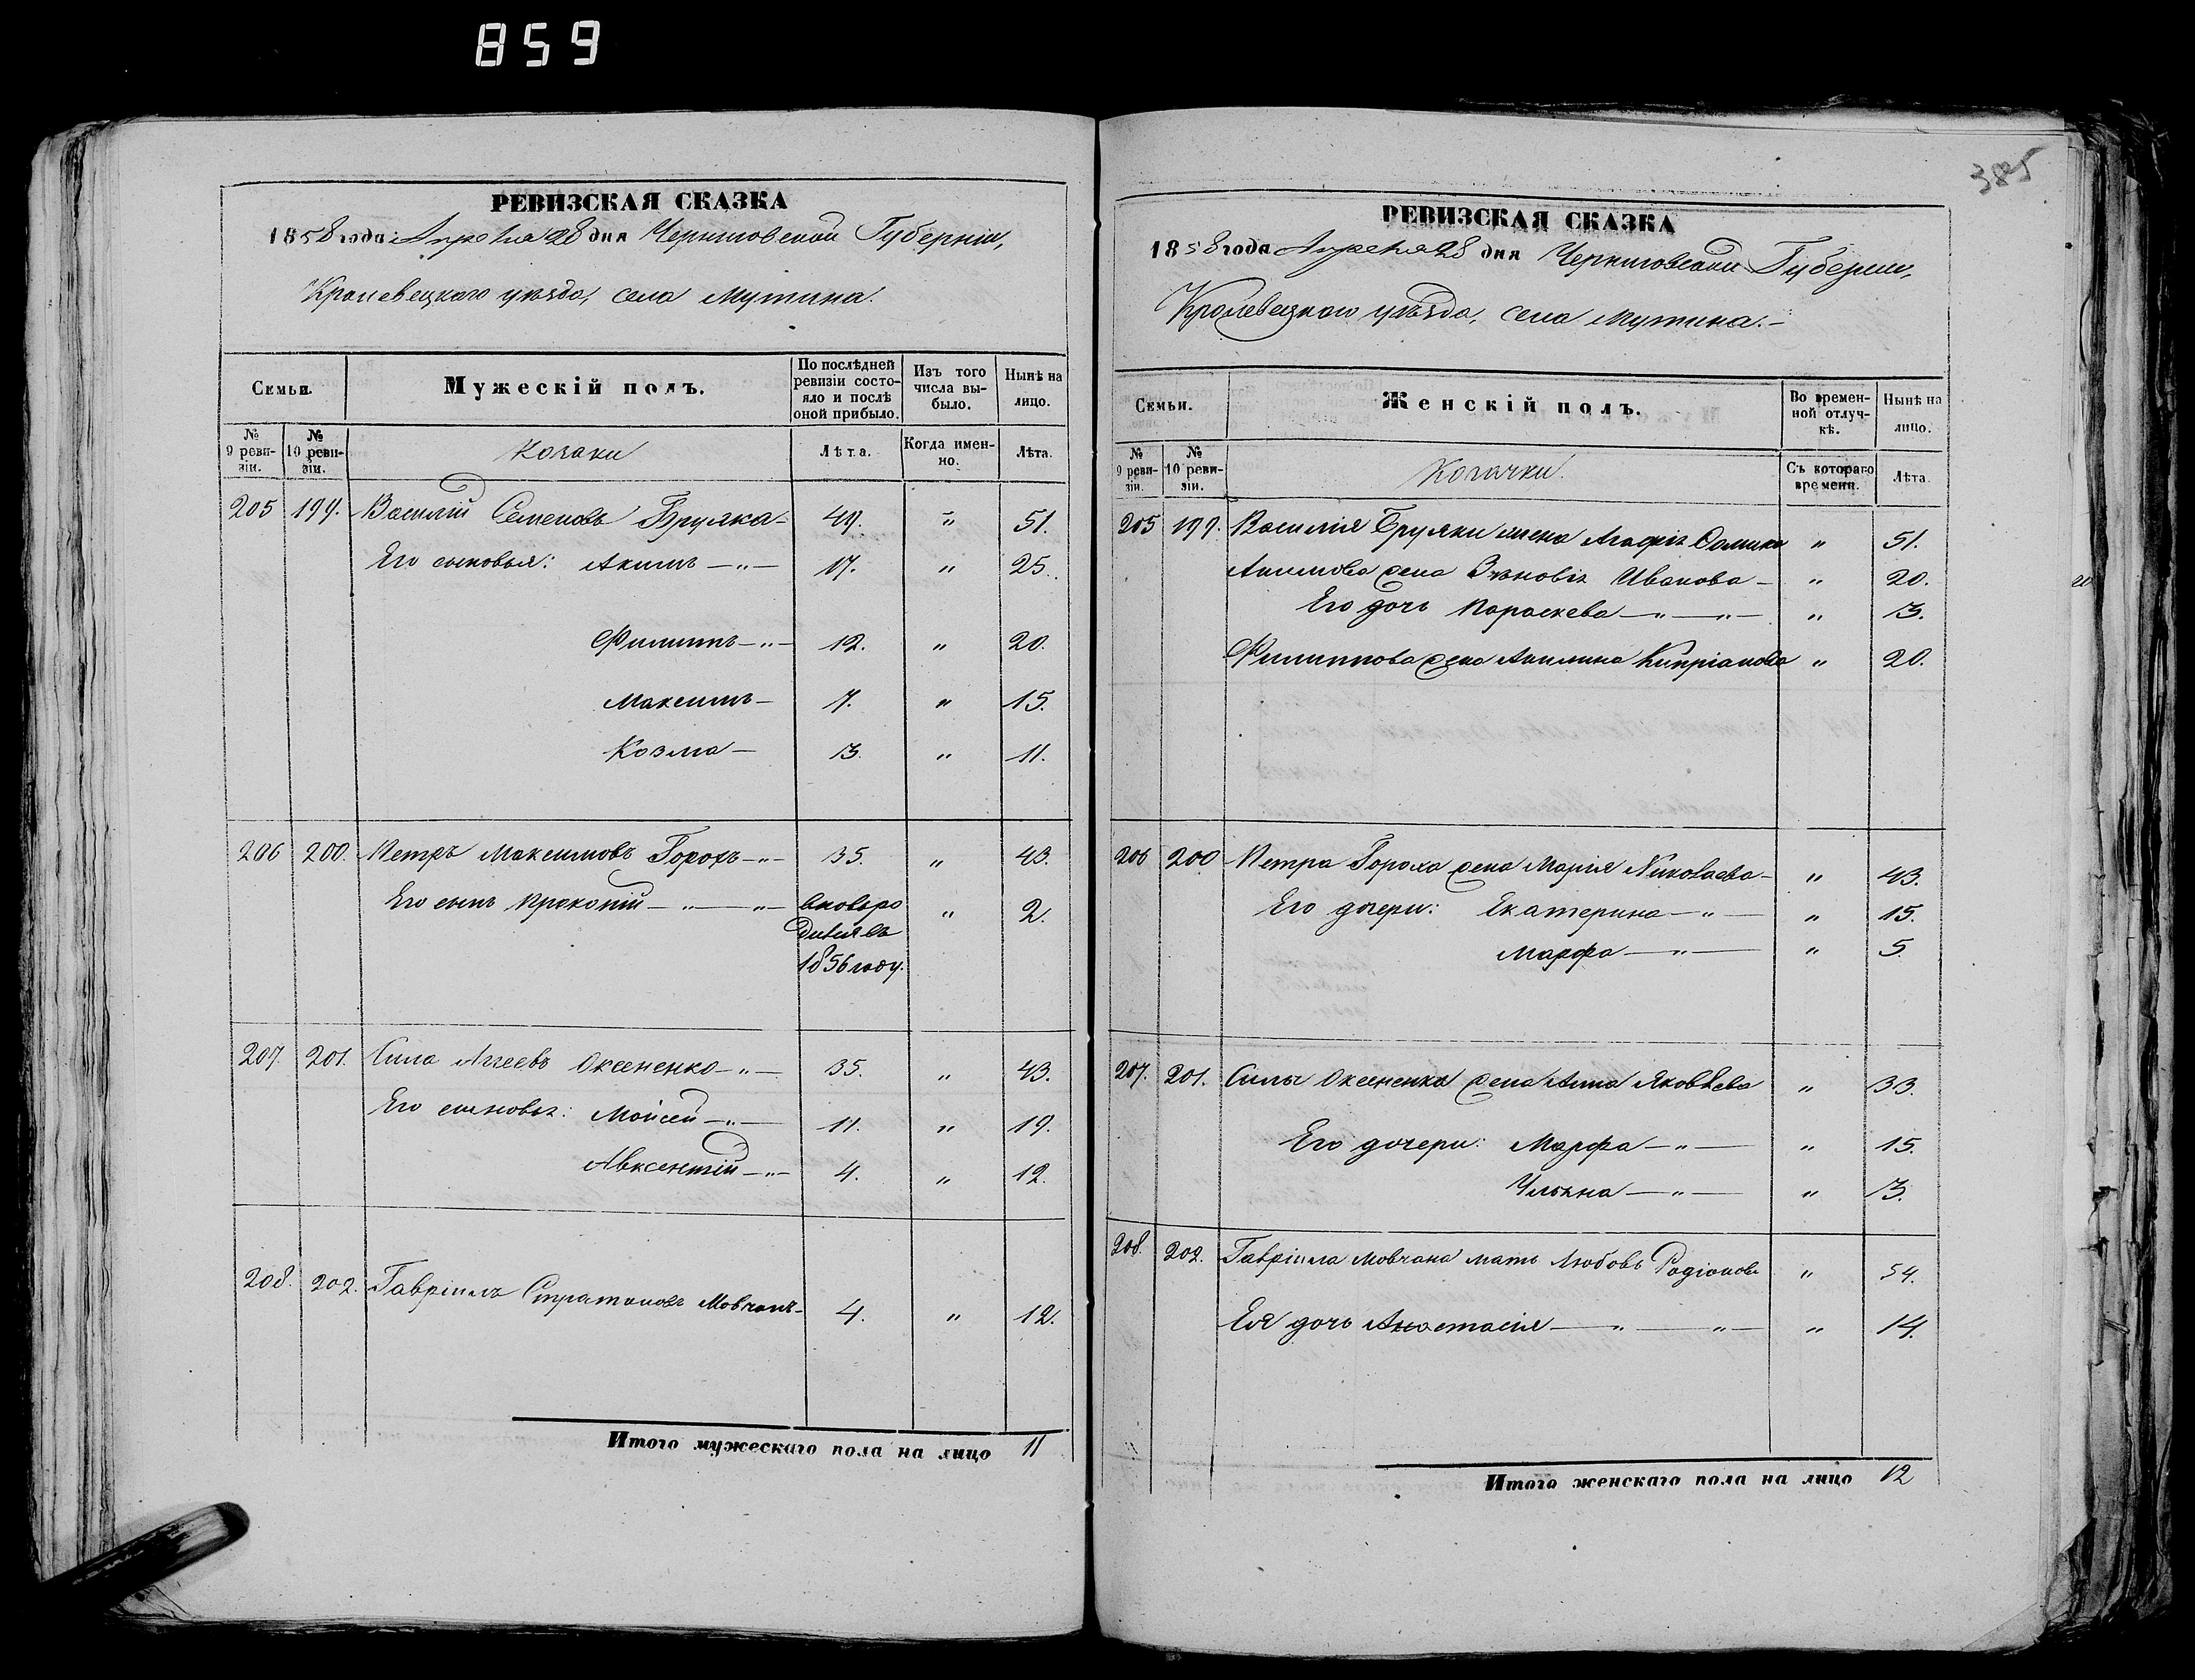 859
385
РЕВИЗСКАЯ СКАЗКА
1858 года Апреля 28 дня Черниговской Губерніи,
Кролевецкаго уѣзда, села Мутина.
Семьи.
Мужескій полъ.
По послѣдней ревизіи состояло и послѣ оной прибыло.
Изъ того числа выбыло.
Нынѣ на лицо.
№ 9 ревизіи.
№ 10 ревизіи.
Козаки
Лѣта.
Когда именно.
Лѣта.
205 199. Василій Семеновъ Бруяка - 49. " 51.
Его сыновья: Акимъ — " — 17. " 25.
Филипъ — " — 12. " 20.
Максимъ — 7. " 15.
Козма — 3. " 11.
206 200. Петръ Максимовъ Горохъ — " — 35. " 43.
Его сынъ Прокопій — " — " — вновьро " 2.
дился въ
1856 году.
207. 201. Сила Аггеевъ Оксененко — " — 35. " 43.
Его сыновья: Мойсей — " — 11. " 19.
Авксентій — " — 4. " 12.
208. 202. Гавріилъ Стратоновъ Мовчанъ - 4. " 12.
Итого мужескаго пола на лицо 11
РЕВИЗСКАЯ СКАЗКА
1858 года Апреля 28 дня Черниговской Губерніи,
Кролевецкаго уѣзда, села Мутина. -
Семьи.
Женскій полъ.
Во временной отлучкѣ.
Нынѣ на лицо.
№ 9 ревизіи.
№ 10 ревизіи.
Козачки.
Съ котораго времени.
Лѣта.
205 199. Василія Бруяки жена Агафія " 51.
Акимова жена Зѣновія Иванова — " 20.
Его дочь Параскева — " — " — " 3.
Филиппова жена Акилина Кипріанова " 20.
206 200 Петра Гороха жена Марія Николаева - " 43.
Его дочери: Екатерина — " — " 15.
Марфа — " — " 5.
207. 201. Силы Оксененка жена Анна Яковлева " 33.
Его дочери: Марфа — " — " 15.
Ульяна — " — " 3.
208. 202. Гавріила Мовчана мать Любовь Родіонова " 54.
Ея дочь Анастасія — " — " — " 14.
Итого женскаго пола на лицо 12